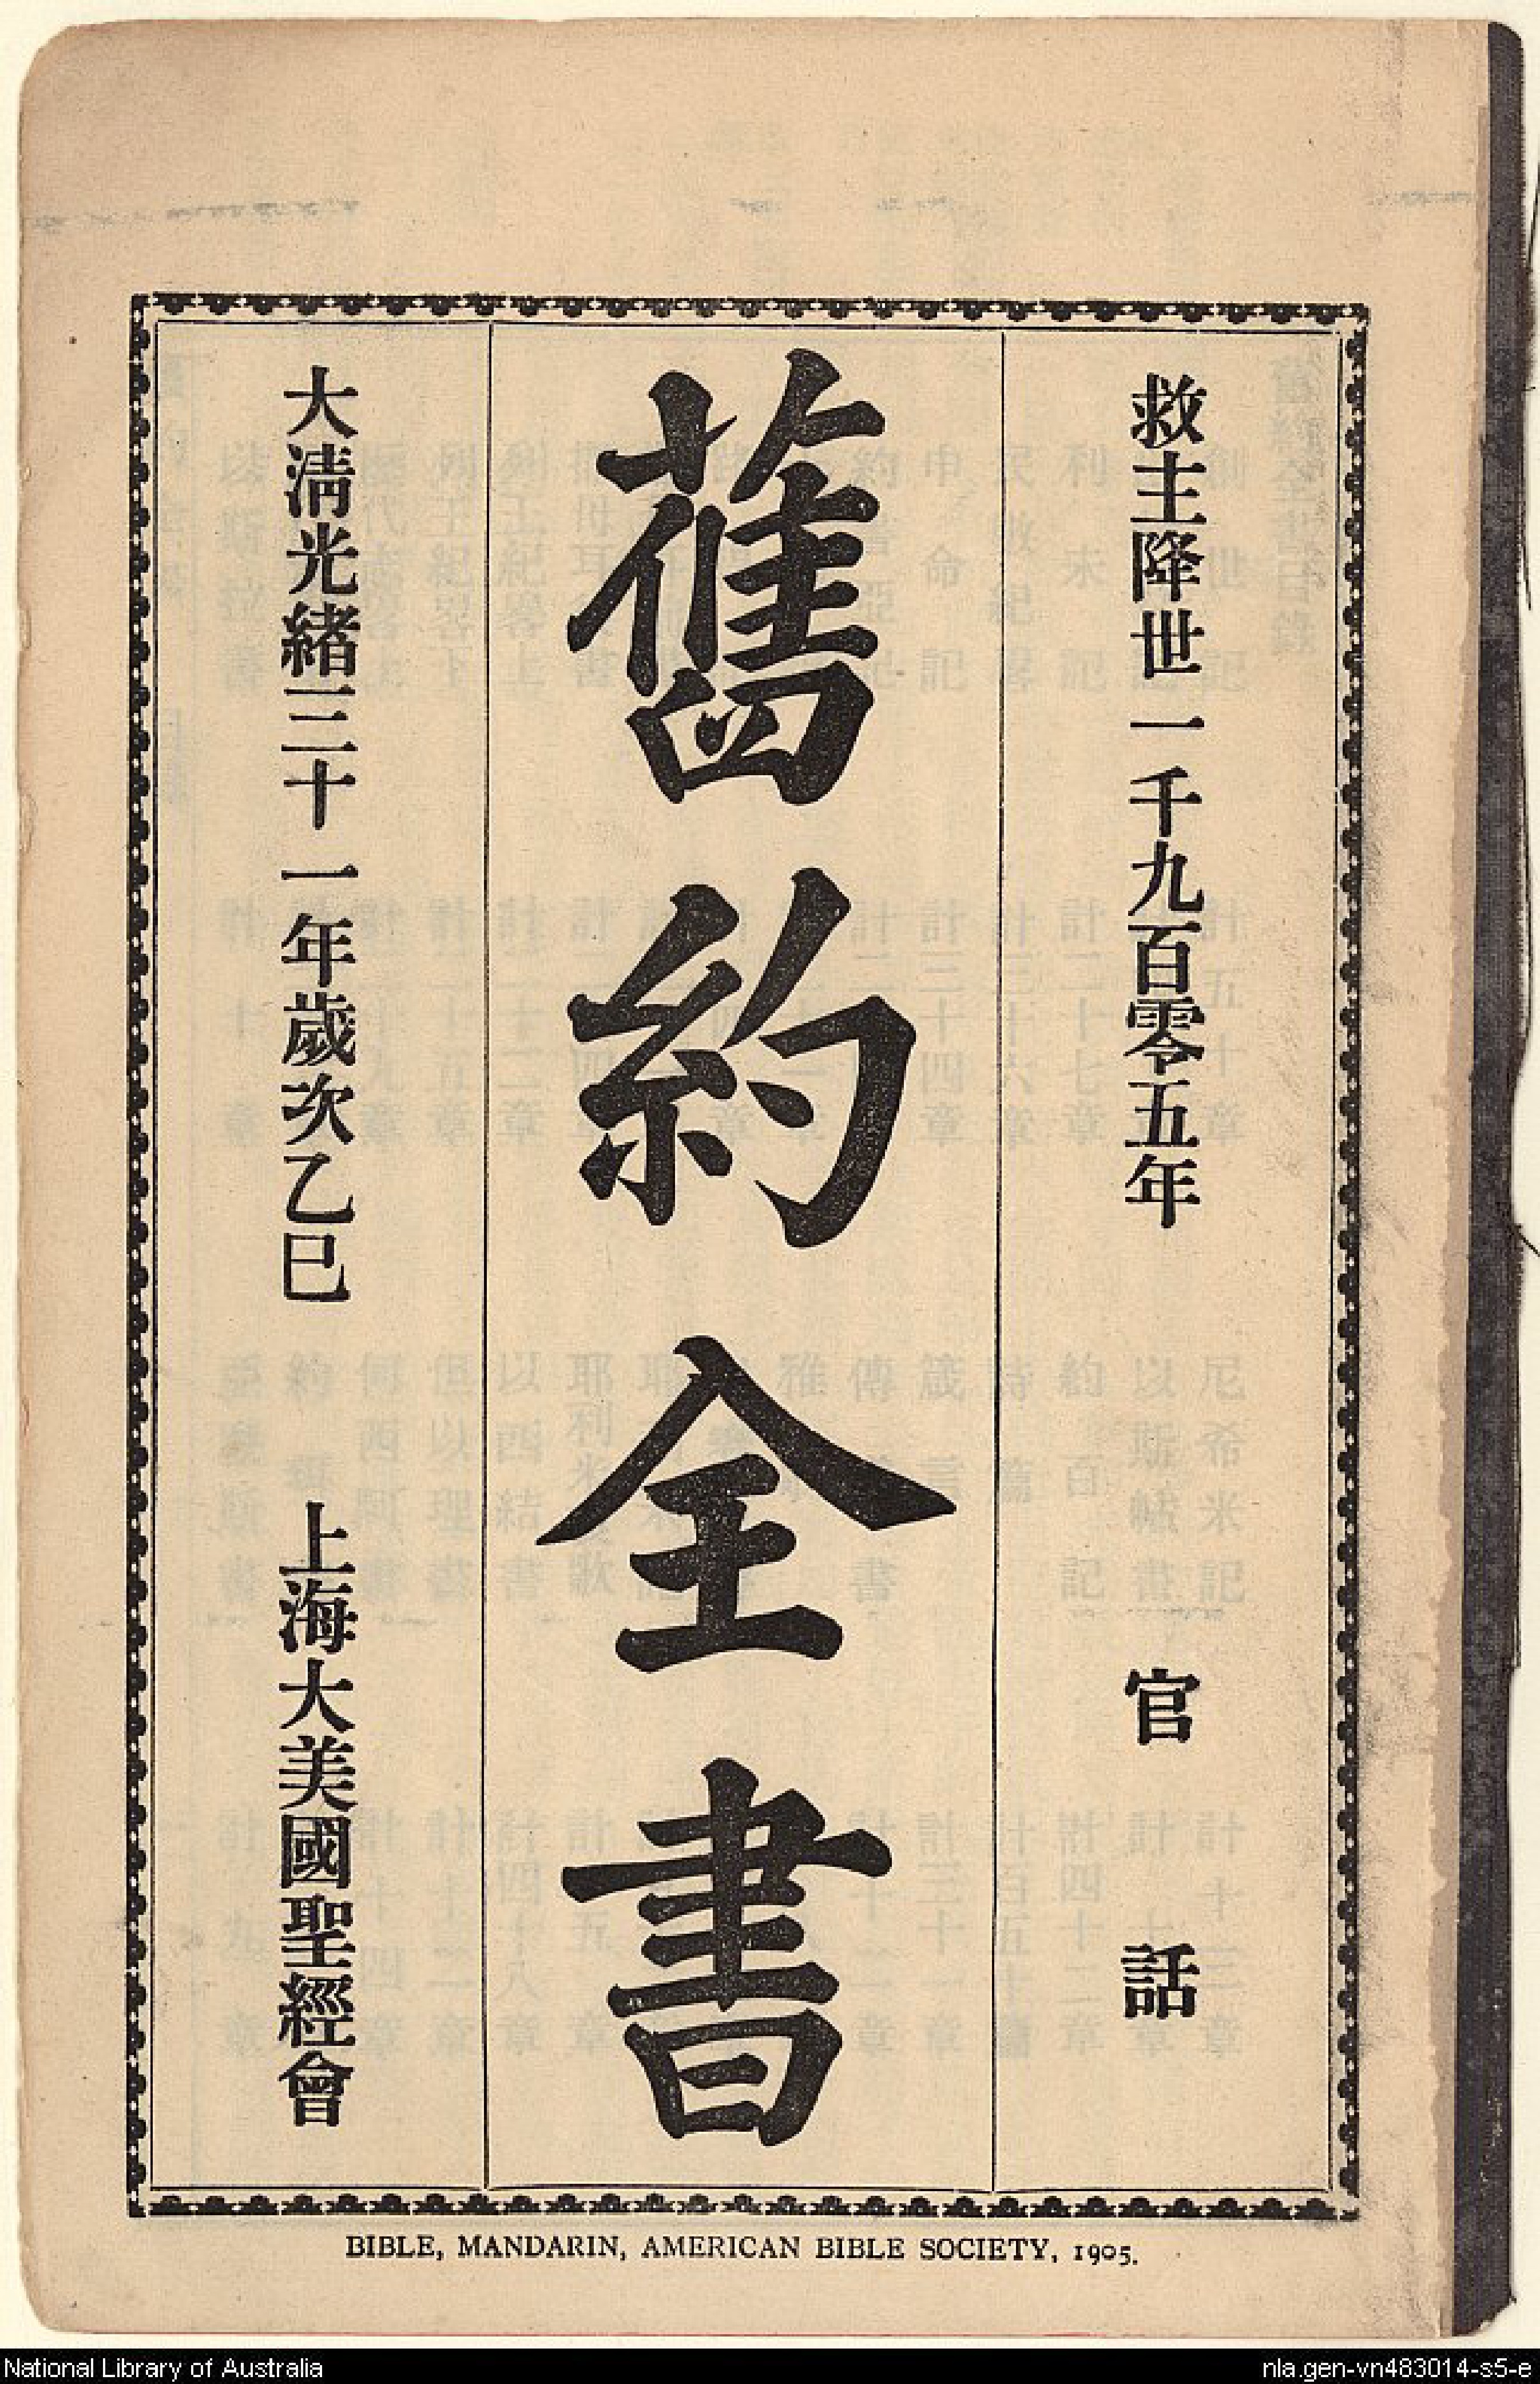 救主降世一千九百零五年 官話
舊約全書
大清光緒三十一年歲次乙巳 上海大美國聖經會
BIBLE, MANDARIN, AMERICAN BIBLE SOCIETY, 1905.
National Library of Australia
nla.gen-vn483014-s5-e